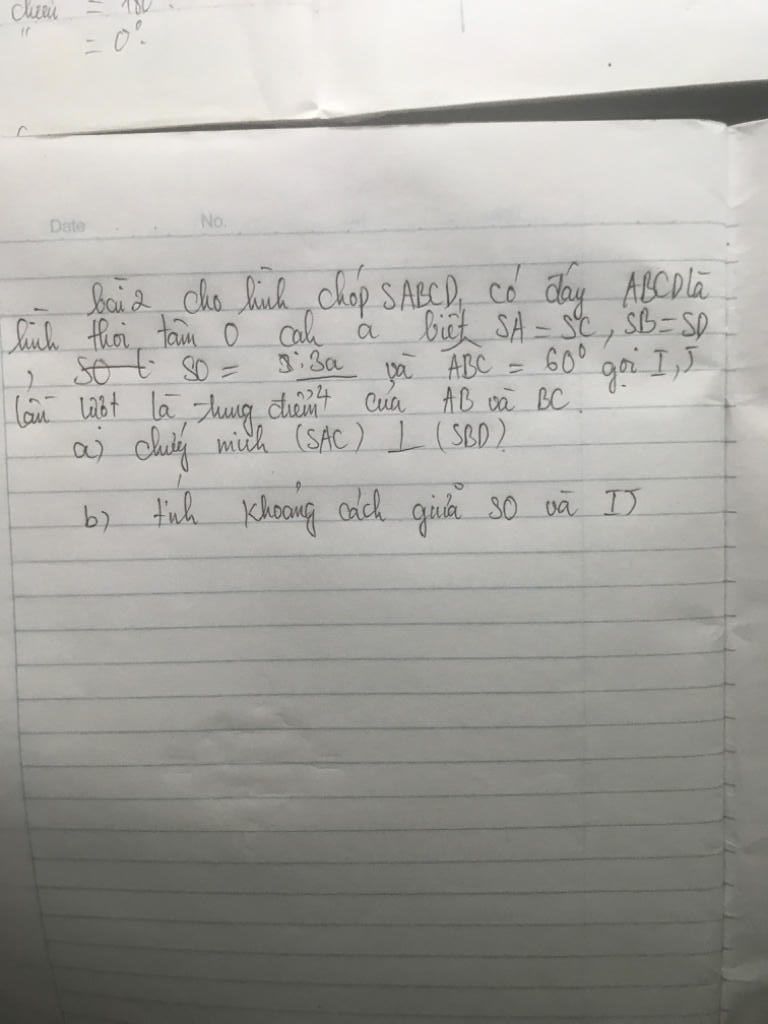 cheeu = 180.
" = 0°.
Date No.
bài 2 cho hình chóp SABCD, có đáy ABCD là
hình thoi tâm O cah a biết SA = SC, SB = SD
, SO = 3a và ABC = 60° gọi I, J
lần lượt là trung điểm 4 của AB và BC.
a) chứng minh (SAC) ⊥ (SBD).
b) tính khoảng cách giữa SO và IJ